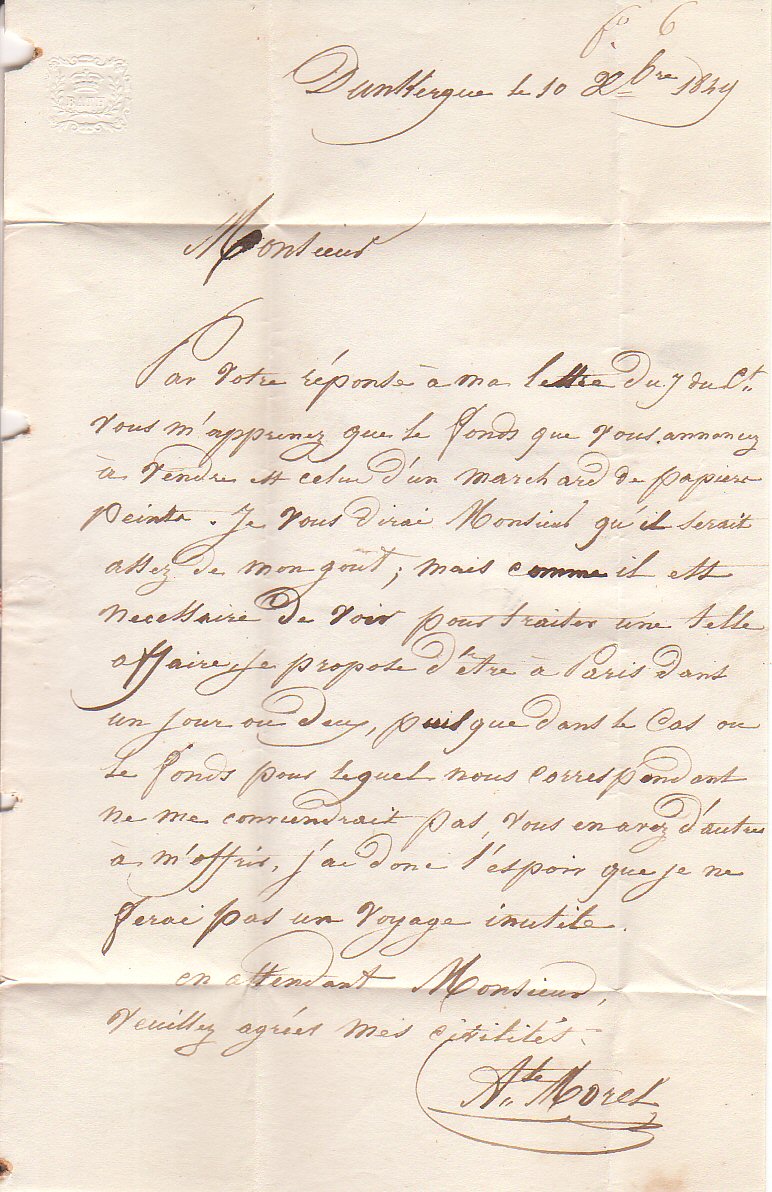 fo 6
BATH
Dunkerque le 10 Xbre 1849
Monsieur
Par votre réponse à ma lettre du 7 du Ct.
vous m'apprenez que le fonds que vous annoncez
à vendre est celui d'un marchand de papiers
peints. Je vous dirai Monsieur qu'il serait
assez de mon goût; mais comme il est
necessaire de voir pour traiter une telle
affaire, je propose d'être à Paris dans
un jour ou deux, puisque dans le cas ou
le fonds pour lequel nous correspondant
ne me conviendrait pas, vous en avez d'autres
à m'offrir, j'ai donc l'espoir que je ne
ferai pas un voyage inutile.
en attendant Monsieur,
Veuillez agréer mes civilités.
Ate. Morel